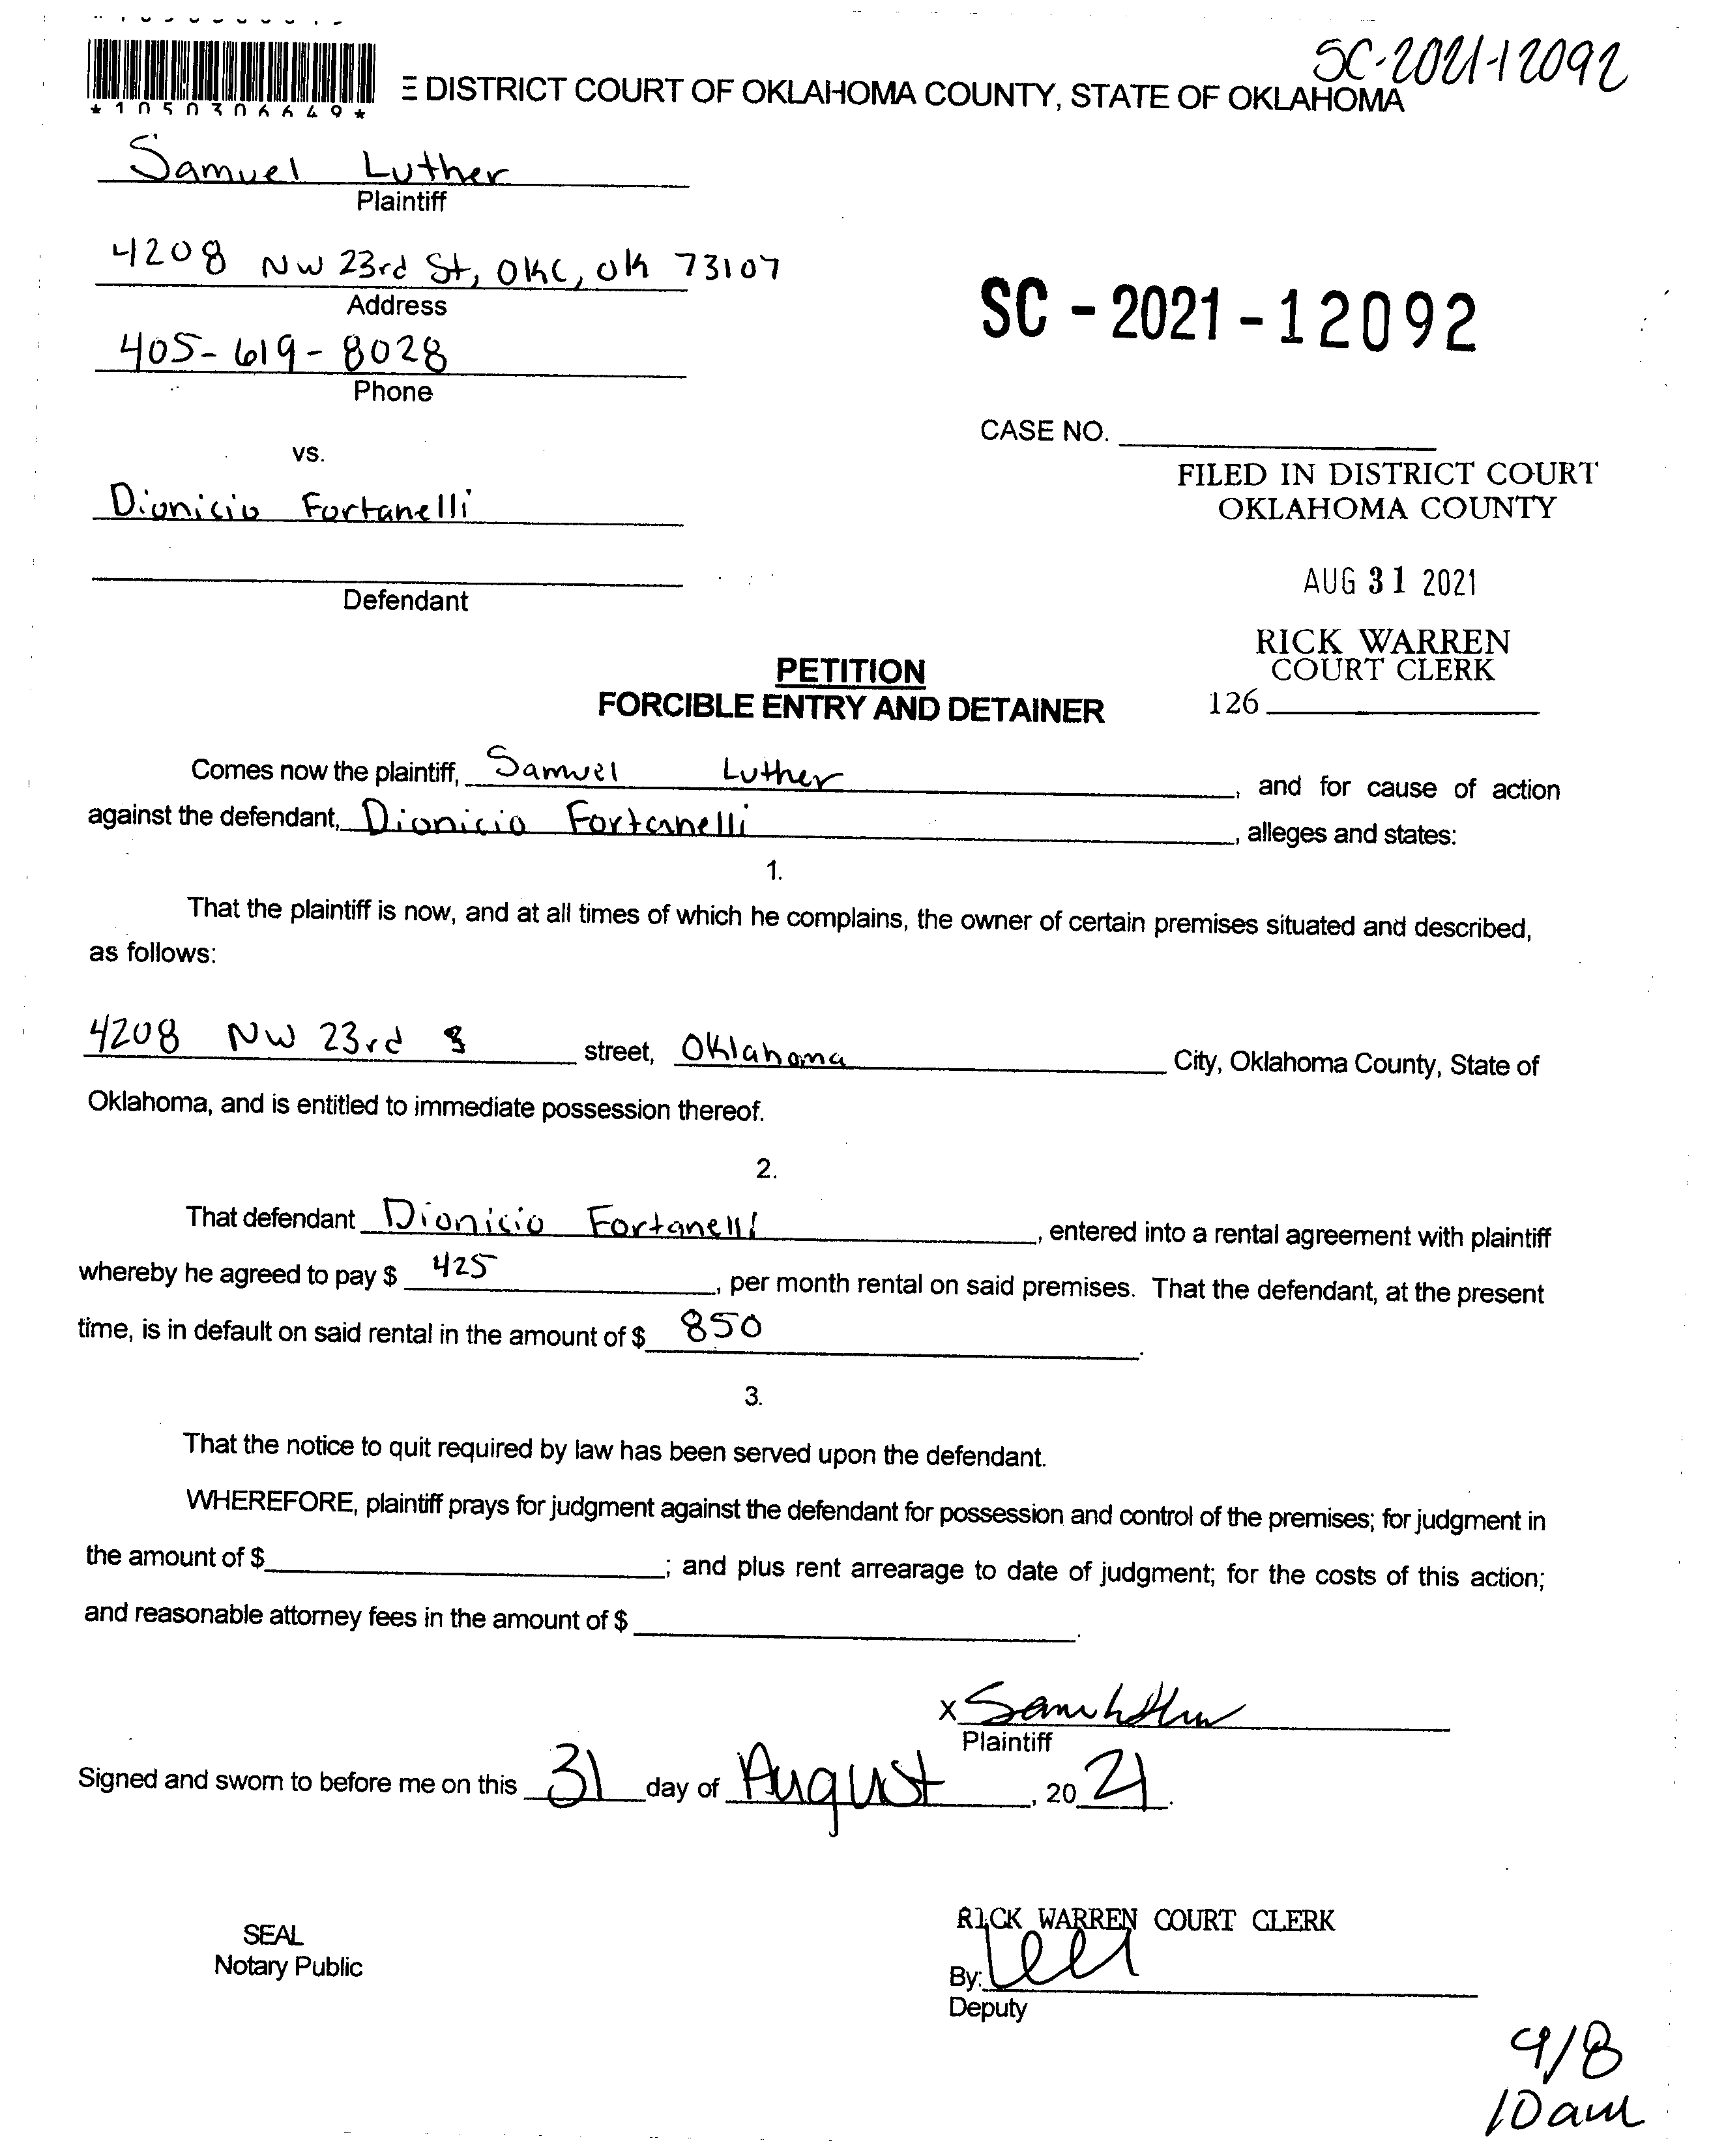 SC-2021-12092
E DISTRICT COURT OF OKLAHOMA COUNTY, STATE OF OKLAHOMA
*1050306649*
Samuel Luther
Plaintiff
4208 NW 23rd St, OKC, OK 73107
Address
SC - 2021 - 12092
405-619-8028
Phone
CASE NO.
vs.
FILED IN DISTRICT COURT
OKLAHOMA COUNTY
Dionicio Fortanelli
AUG 31 2021
Defendant
RICK WARREN
COURT CLERK
126
PETITION
FORCIBLE ENTRY AND DETAINER
Comes now the plaintiff, Samuel Luther, and for cause of action
against the defendant, Dionicio Fortanelli, alleges and states:
1.
That the plaintiff is now, and at all times of which he complains, the owner of certain premises situated and described,
as follows:
4208 NW 23rd street, Oklahoma City, Oklahoma County, State of
Oklahoma, and is entitled to immediate possession thereof.
2.
That defendant Dionicio Fortanelli, entered into a rental agreement with plaintiff
whereby he agreed to pay $ 425, per month rental on said premises. That the defendant, at the present
time, is in default on said rental in the amount of $ 850.
3.
That the notice to quit required by law has been served upon the defendant.
WHEREFORE, plaintiff prays for judgment against the defendant for possession and control of the premises; for judgment in
the amount of $ ; and plus rent arrearage to date of judgment; for the costs of this action;
and reasonable attorney fees in the amount of $ .
X
Plaintiff
Signed and sworn to before me on this 31 day of August, 20 21.
RICK WARREN COURT CLERK
SEAL
Notary Public
By:
Deputy
9/8
10am